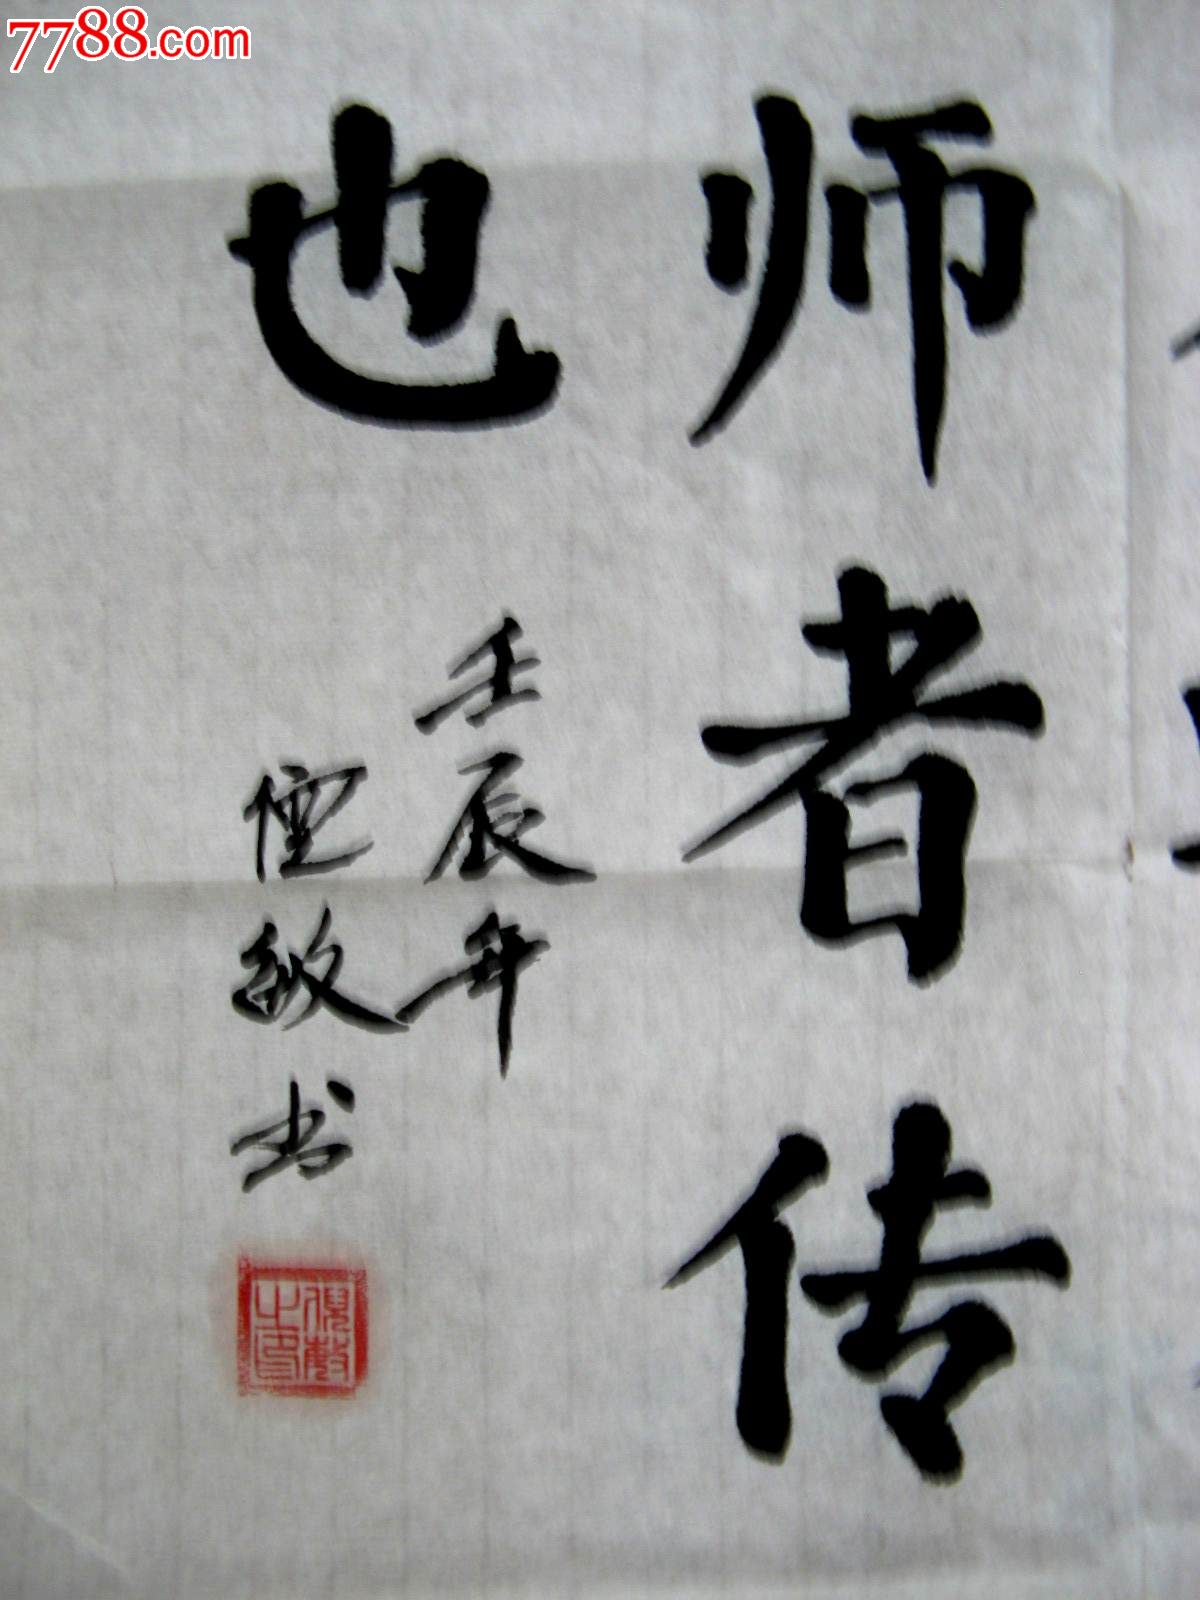 7788.com
师者传
也
壬辰年
敏书